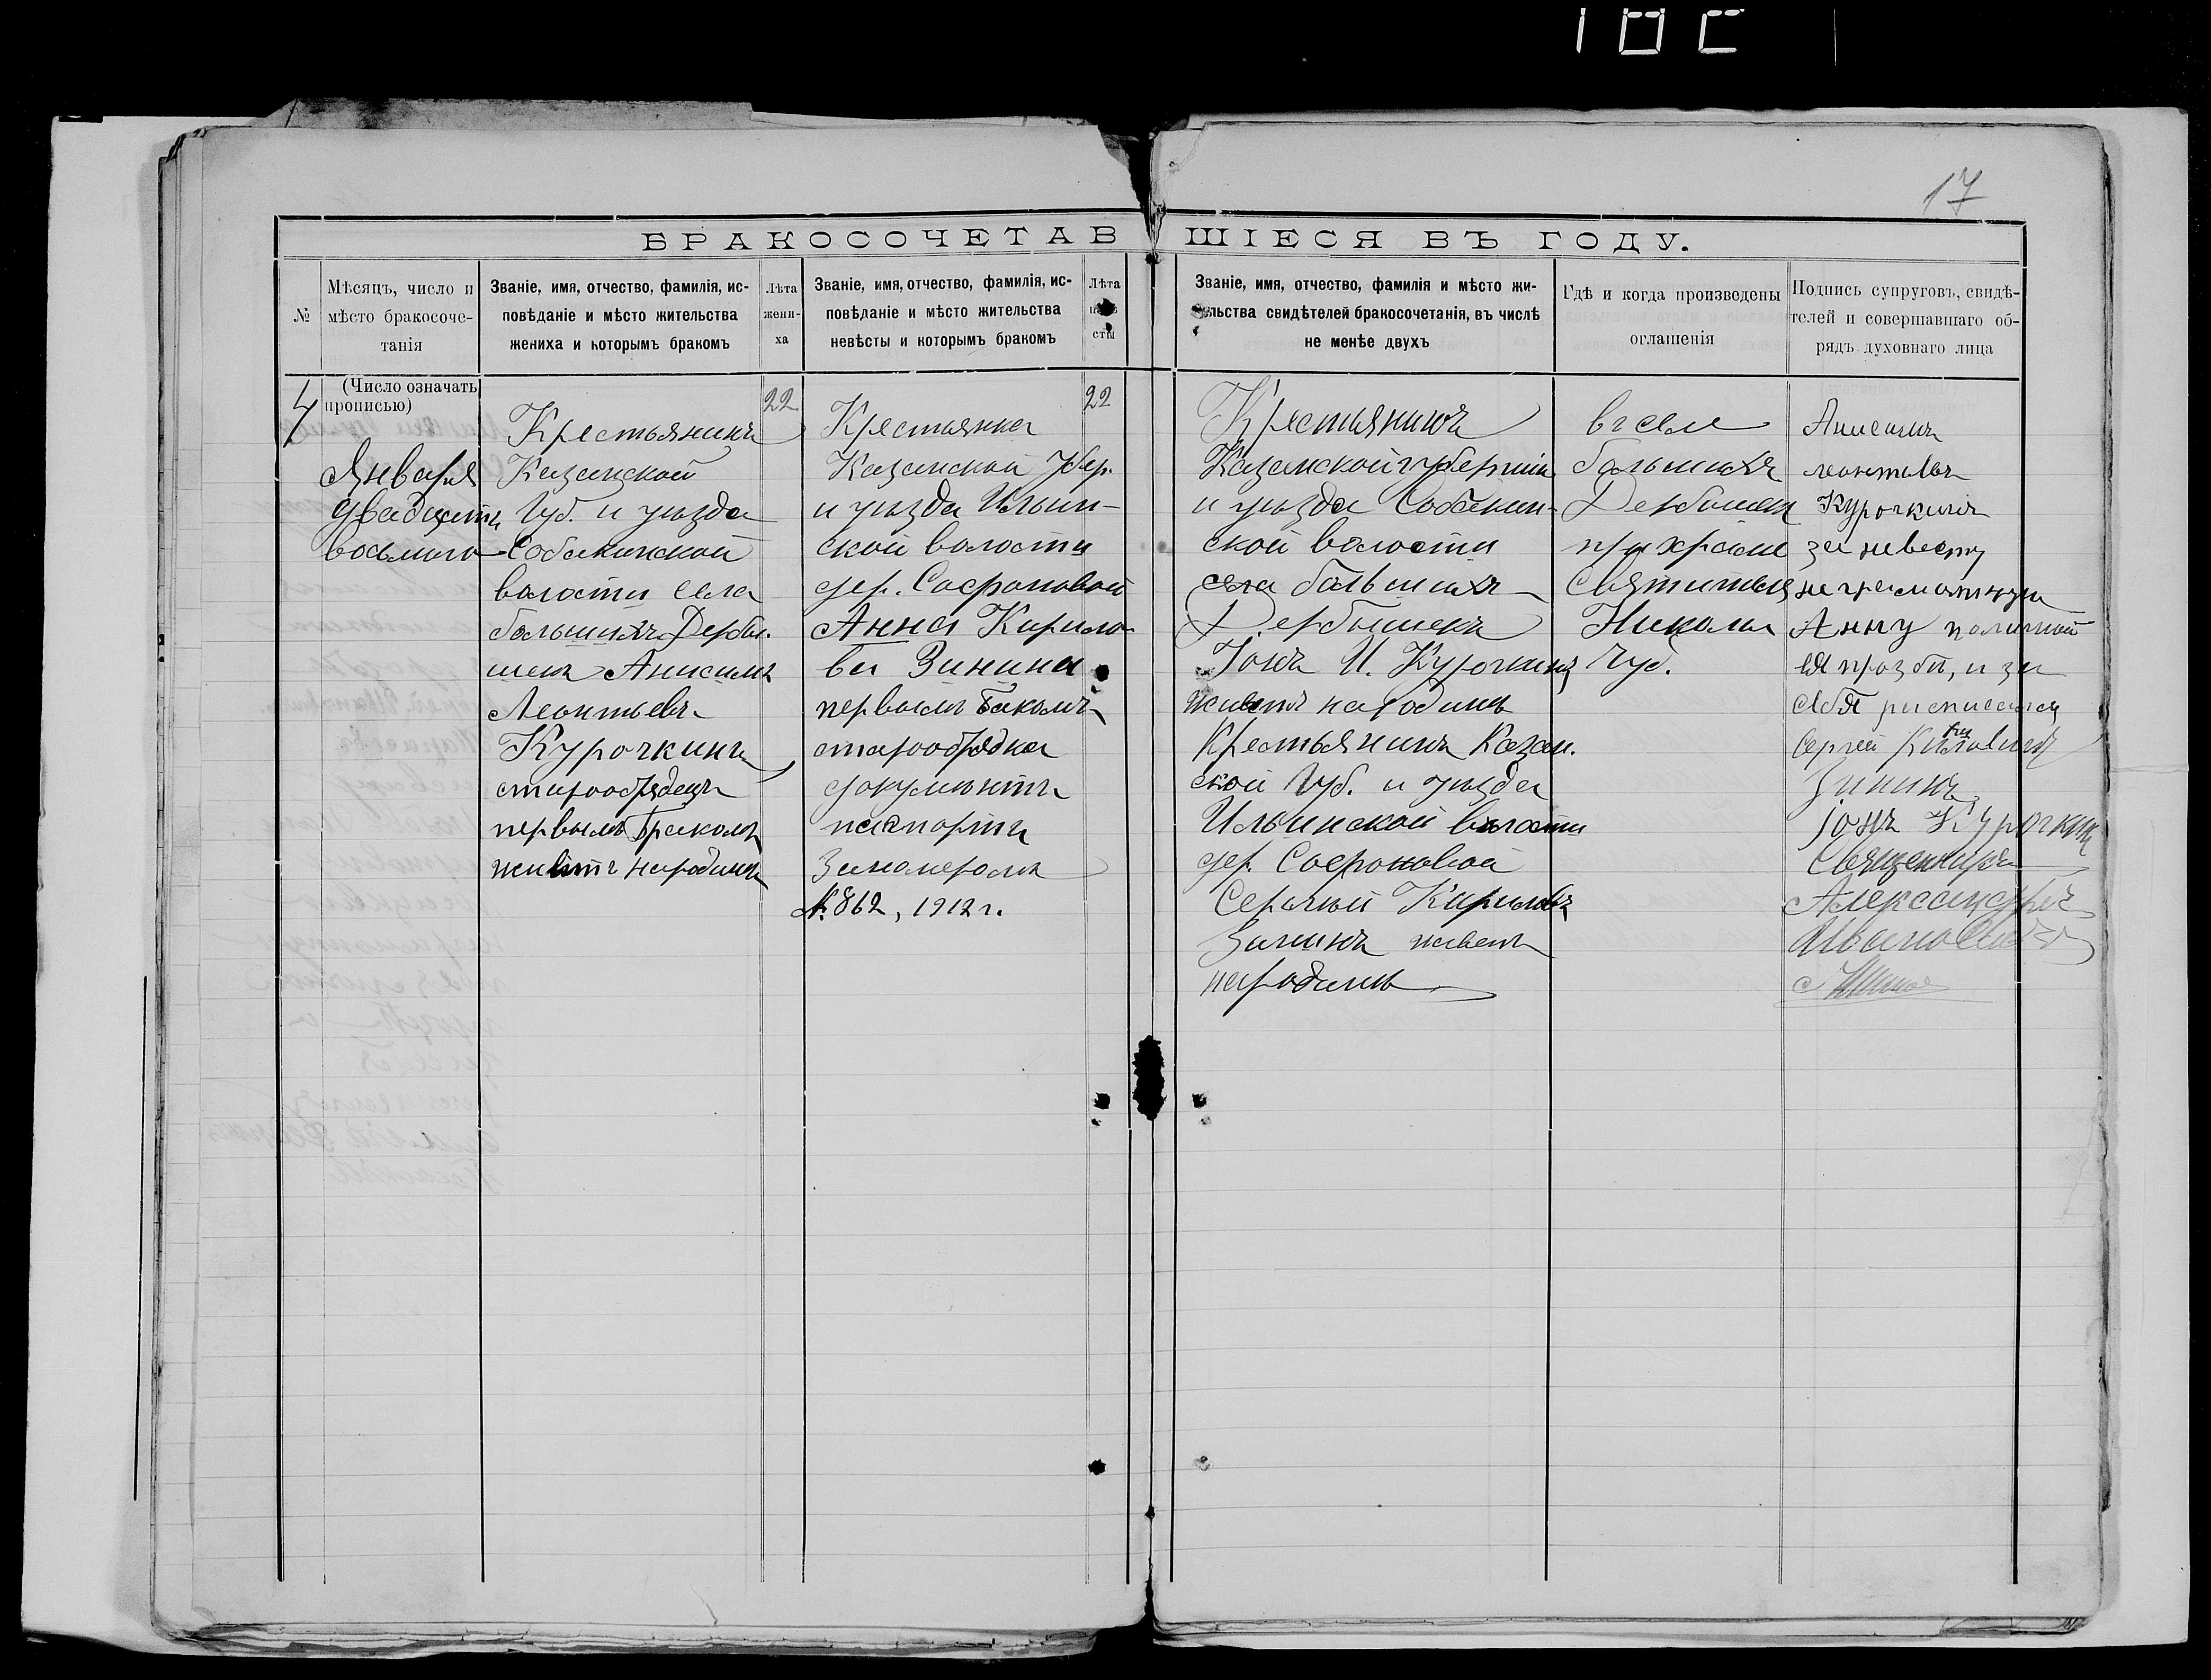 17
БРАКОСОЧЕТАВШІЕСЯ ВЪ ГОДУ.
№
Мѣсяцъ, число и
мѣсто бракосоче-
танія
Званіе, имя, отчество, фамилія, ис-
повѣданіе и мѣсто жительства
жениха и которымъ бракомъ
Лѣта
жени-
ха
Званіе, имя, отчество, фамилія, ис-
повѣданіе и мѣсто жительства
невѣсты и которымъ бракомъ
Лѣта
сты
Званіе, имя, отчество, фамилія и мѣсто жи-
тельства свидѣтелей бракосочетанія, въ числѣ
не менѣе двухъ
Гдѣ и когда произведены
оглашенія
Подпись супруговъ, свидѣ-
телей и совершавшаго об-
рядъ духовнаго лица
4
(Число означать
прописью)
Января
двадцать
восьмого
Крестьянинъ
Казанской
Губ. и уѣзда
Собакинской
волости села
большихъ Дербы-
шекъ Анисимъ
Леонтьевъ
Курочкинъ
старообрядецъ
первымъ бракомъ
живетъ народинѣ
22
Крестьянка
Казанской Губер.
и уѣзда Ильин-
ской волости
дер. Софроновой
Анна Кирило-
ва Зинина
первымъ бакомъ
старообрядка
документъ
паспортъ
Заномеромъ
№ 862, 1912 г.
22
Крестьянинъ
Казанской губерніи
и уѣзда Собакин-
ской волости
села большихъ
Дербышекъ
Іонъ И. Курочкинъ
живетъ народинѣ
Крестьянинъ Казан.
ской Губ. и уѣзда
Ильинской волости
дер. Софроновой
Сергѣй Кириловъ
Зининъ живетъ
народинѣ
въ селе
большихъ
Дербышек
при храме
Святителя
Николы
Чуд.
Анисимъ
леонтьевъ
Курочкинъ
за невесту
неграмотную
Анну поличной
ея прозбѣ, и за
себя расписался
Сергей Кириловичъ
Зининъ
іонъ Курочкинъ
Священникъ
Александръ